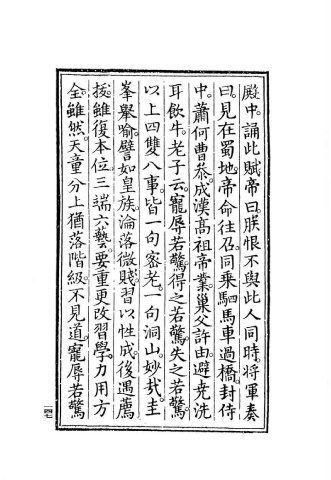 殿中。誦此賦。帝曰。朕恨不與此人同時。將軍奏
曰。見在蜀地。帝命往召。同乘駟馬車過橋。封侍
中。蕭何曹叅。成漢高祖帝業。巢父許由。避堯洗
耳飲牛。老子云。寵辱若驚。得之若驚。失之若驚。
以上四雙八事。皆一句密老。一句洞山。妙㦲。圭
峯舉喻。譬如皇族。淪落微賤。習以性成。後遇薦
拔。雖復本位。三端六藝。要重更改習學。力用方
全。雖然。天童分上猶落階級。不見道。寵辱若驚
一四七